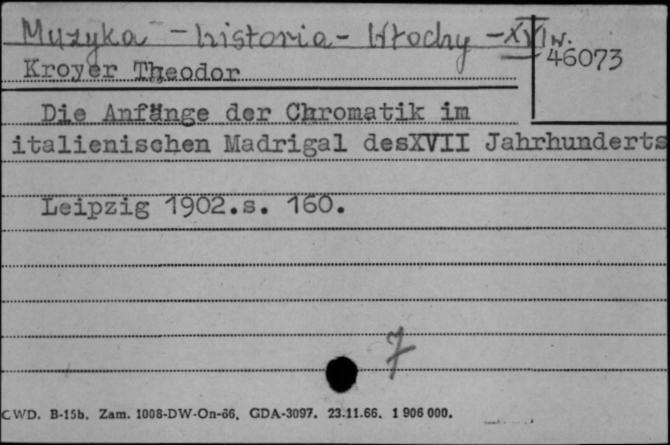 Muzyka - historia - Włochy - XVI w.
46073
Kroyer Theodor
Die Anfänge der Chromatik im
italienischen Madrigal desXVII Jahrhunderts
Leipzig 1902.s. 160.
7
CWD. B-15b. Zam. 1008-DW-On-66. GDA-3097. 23.11.66. 1 906 000.